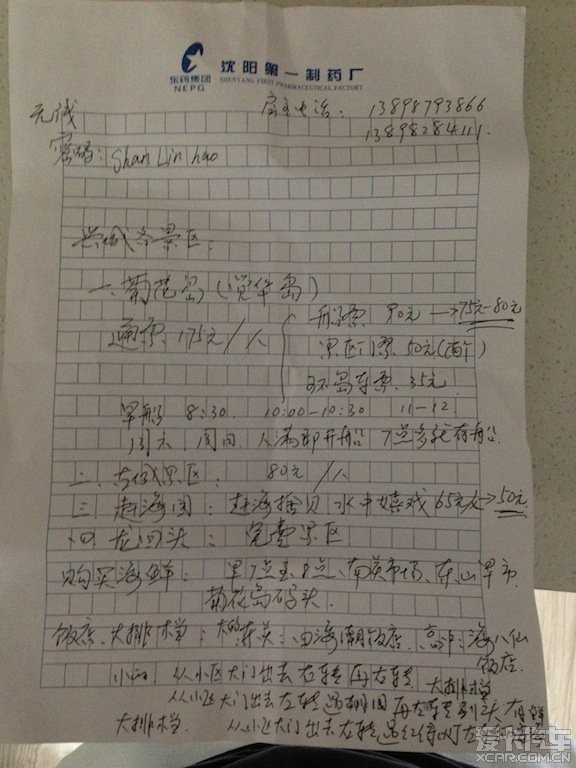 东药集团
NEPG
沈阳第一制药厂
SHENYANG FIRST PHARMACEUTICAL FACTORY
房主电话：13898793866
13898284111
无线
密码：Shan Lin hao
兴城各景区：
一、菊花岛（觉华岛）
通票，175元/人
船票 90元→75元-80元
景区门票 50元（两个）
环岛车票 35元
早船 8:30 10:00-10:30 11-12
周六 周日 人满即开船 7点多就有船
二、古城景区： 80元/人
三、赶海园：赶海拾贝 水中嬉戏 65元/人→50元
四、龙回头： 完整景区
购买海鲜： 早7点至8点、南关市场、东山早市
菊花岛码头.
饭店、大排档： 海潮饭店. 高档：海八仙
饭店.
从小区大门出去右转再右转 大排档
从小区大门出去左转 再左转到头右
大排档. 从小区大门出去左转 红绿灯左
爱卡汽车
XCAR.COM.CN